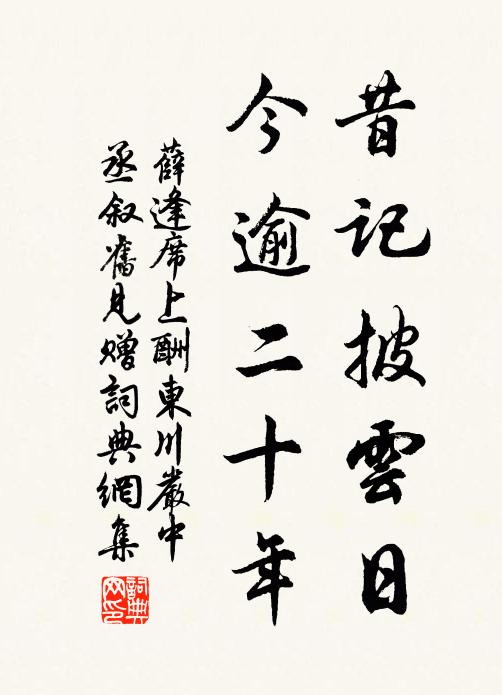 昔記披雲日
今逾二十年
薛逢席上酬東川嚴中
丞叙舊見贈詞典網集
詞典
网印